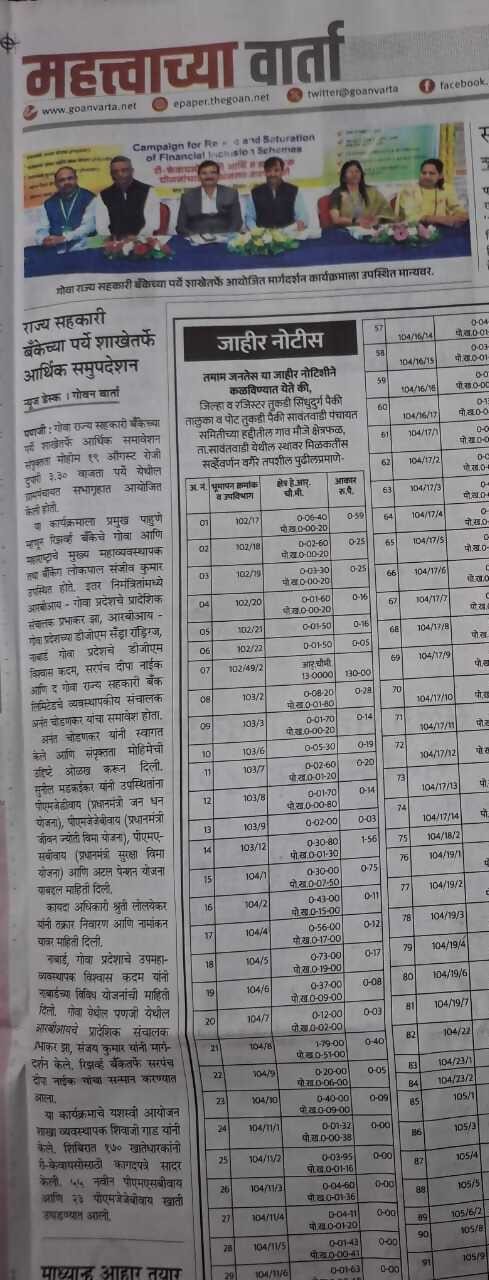 महत्त्वाच्या वार्ता
www.goanvarta.net
epaper.thegoan.net
twitter@goanvarta
facebook.
Campaign for Re and Saturation
of Financial Inclusion Schemes
गोवा राज्य सहकारी बँकेच्या पर्ये शाखेतर्फे आयोजित मार्गदर्शन कार्यक्रमाला उपस्थित मान्यवर.
राज्य सहकारी
बँकेच्या पर्ये शाखेतर्फे
आर्थिक समुपदेशन
न्यूज डेस्क । गोवन वार्ता
पणजी : गोवा राज्य सहकारी बँकेच्या
पर्ये शाखेतर्फे आर्थिक समावेशन
संपृक्तता मोहीम १९ ऑगस्ट रोजी
दुपारी ३.३० वाजता पर्ये येथील
ग्रामपंचायत सभागृहात आयोजित
केली होती.
या कार्यक्रमाला प्रमुख पाहुणे
म्हणून रिझर्व्ह बँकेचे गोवा आणि
महाराष्ट्राचे मुख्य महाव्यवस्थापक
तथा बँकिंग लोकपाल संजीव कुमार
उपस्थित होते. इतर निमंत्रितांमध्ये
आरबीआय - गोवा प्रदेशचे प्रादेशिक
संचालक प्रभाकर झा, आरबीआय -
गोवा प्रदेशच्या डीजीएम सँड्रा रॉड्रिग्ज,
नाबार्ड गोवा प्रदेशचे डीजीएम
विश्वास कदम, सरपंच दीपा नाईक
आणि द गोवा राज्य सहकारी बँक
लिमिटेडचे व्यवस्थापकीय संचालक
अनंत चोडणकर यांचा समावेश होता.
अनंत चोडणकर यांनी स्वागत
केले आणि संपृक्तता मोहिमेची
उद्दिष्टे ओळख करून दिली.
सुनील मडकईकर यांनी उपस्थितांना
पीएमजेडीवाय (प्रधानमंत्री जन धन
योजना), पीएमजेजेबीवाय (प्रधानमंत्री
जीवन ज्योती विमा योजना), पीएमए-
सबीवाय (प्रधानमंत्री सुरक्षा विमा
योजना) आणि अटल पेन्शन योजना
याबद्दल माहिती दिली.
कायदा अधिकारी श्रुती लोलयेकर
यांनी तक्रार निवारण आणि नामांकन
यावर माहिती दिली.
नाबार्ड, गोवा प्रदेशाचे उपमहा-
व्यवस्थापक विश्वास कदम यांनी
नाबार्डच्या विविध योजनांची माहिती
दिली. गोवा येथील पणजी येथील
आरबीआयचे प्रादेशिक संचालक
प्रभाकर झा, संजय कुमार यांनी मार्ग-
दर्शन केले. रिझर्व्ह बँकेतर्फे सरपंच
दीपा नाईक यांचा सन्मान करण्यात
आला.
या कार्यक्रमाचे यशस्वी आयोजन
शाखा व्यवस्थापक शिवाजी गाड यांनी
केले. शिबिरात १७० खातेधारकांनी
री-केवायसीसाठी कागदपत्रे सादर
केली. ५५ नवीन पीएमएसबीवाय
आणि २३ पीएमजेजेबीवाय खाती
उघडण्यात आली.
माध्यान्ह आहार तयार
जाहीर नोटीस
तमाम जनतेस या जाहीर नोटिशीने
कळविण्यात येते की,
जिल्हा व रजिस्टर तुकडी सिंधुदुर्ग पैकी
तालुका व पोट तुकडी पैकी सावंतवाडी पंचायत
समितीच्या हद्दीतील गाव मौजे क्षेत्रफळ,
ता.सावंतवाडी येथील स्थावर मिळकतींस
सर्व्हेवर्णन वगैरे तपशील पुढीलप्रमाणे-
अ. नं. भूमापन क्रमांक व उपविभाग क्षेत्र हे.आर. चौ.मी. आकार रु.पै.
01 102/17 0-06-40 पो.ख.0-00-20 0-59
02 102/18 0-02-60 पो.ख.0-00-20 0-25
03 102/19 0-03-30 पो.ख.0-00-20 0-25
04 102/20 0-01-60 पो.ख.0-00-20 0-16
05 102/21 0-01-50 0-16
06 102/22 0-01-50 0-05
07 102/49/2 आर.चौमी. 13-0000 130-00
08 103/2 0-08-20 पो.ख.0-01-80 0-28
09 103/3 0-01-70 पो.ख.0-00-20 0-14
10 103/6 0-05-30 0-19
11 103/7 0-02-60 पो.ख.0-01-20 0-20
12 103/8 0-01-70 पो.ख.0-00-80 0-14
13 103/9 0-02-00 0-03
14 103/12 0-30-80 पो.ख.0-01-30 1-56
15 104/1 0-30-00 पो.ख.0-07-50 0-75
16 104/2 0-43-00 पो.ख.0-15-00 0-11
17 104/4 0-56-00 पो.ख.0-17-00 0-12
18 104/5 0-73-00 पो.ख.0-19-00 0-17
19 104/6 0-37-00 पो.ख.0-09-00 0-08
20 104/7 0-12-00 पो.ख.0-02-00 0-03
21 104/8 1-79-00 पो.ख.0-51-00 0-40
22 104/9 0-20-00 पो.ख.0-06-00 0-05
23 104/10 0-40-00 पो.ख.0-09-00 0-09
24 104/11/1 0-01-32 पो.ख.0-00-38 0-00
25 104/11/2 0-03-95 पो.ख.0-01-16 0-00
26 104/11/3 0-04-60 पो.ख.0-01-36 0-00
27 104/11/4 0-04-11 पो.ख.0-01-20 0-00
28 104/11/5 0-01-43 पो.ख.0-00-41 0-00
29 104/11/6 0-01-63 0-00
57 104/16/14
58 104/16/15
59 104/16/16
60 104/16/17
61 104/17/1
62 104/17/2
63 104/17/3
64 104/17/4
65 104/17/5
66 104/17/6
67 104/17/7
68 104/17/8
69 104/17/9
70 104/17/10
71 104/17/11
72 104/17/12
73 104/17/13
74 104/17/14
75 104/18/2
76 104/19/1
77 104/19/2
78 104/19/3
79 104/19/4
80 104/19/6
81 104/19/7
82 104/22
83 104/23/1
84 104/23/2
85 105/1
86 105/3
87 105/4
88 105/5
89 105/6/2
90 105/8
91 105/9